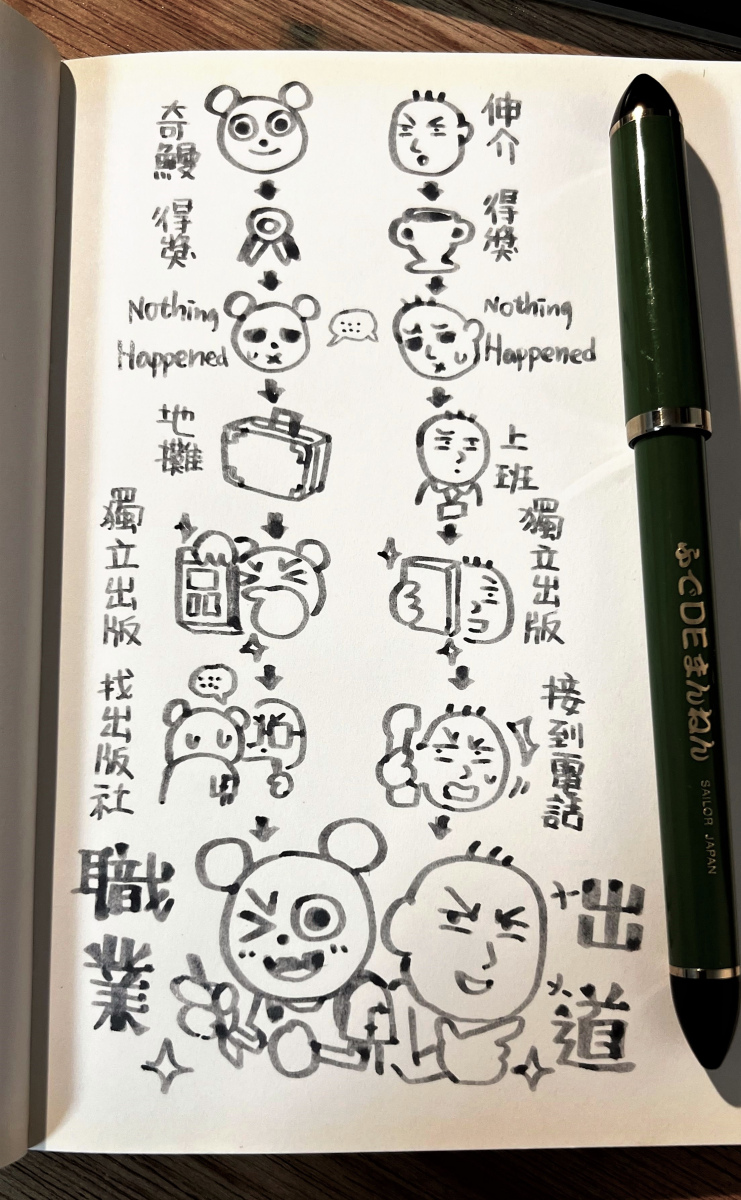 奇鰻
得獎
Nothing
Happened
地攤
獨立出版
找出版社
伸介
得獎
Nothing
Happened
上班
獨立出版
接到電話
職業
出道
ふでDEまんねん
SAILOR JAPAN